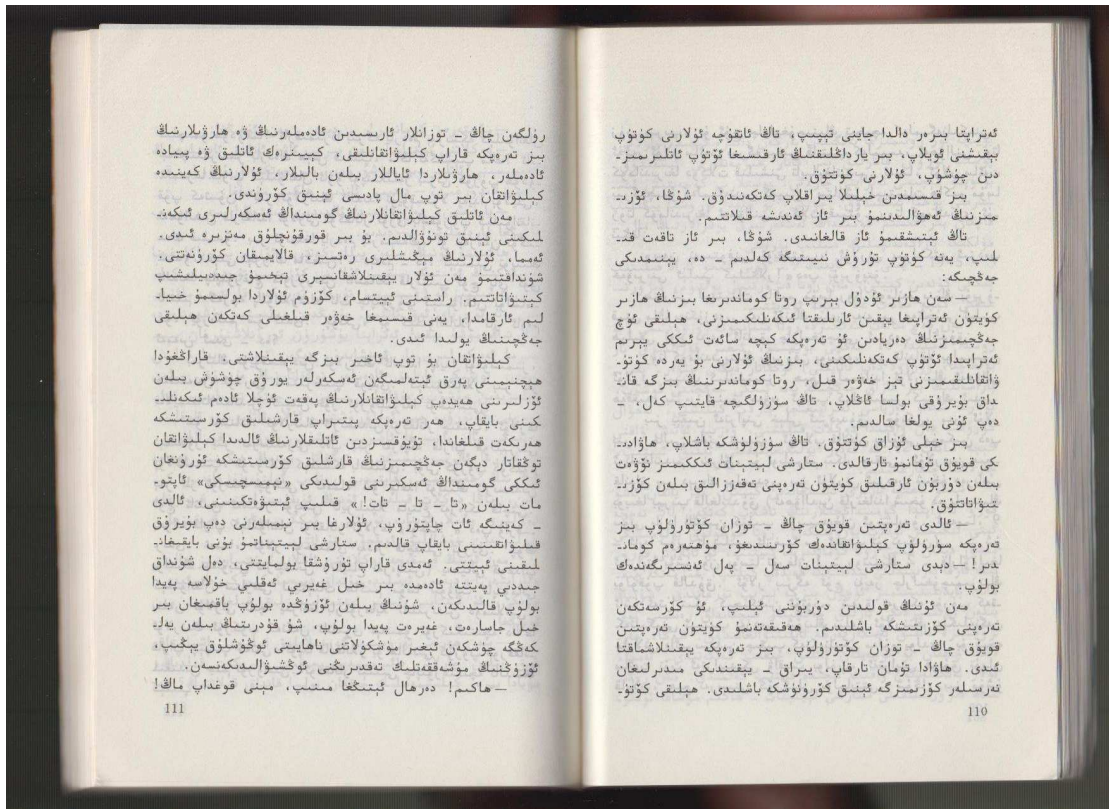 ئەتراپتا بىزەر دالدا جاينى تېپىپ، تاڭ ئاتقۇچە ئۇلارنى كۈتۈپ
بېقىشنى ئويلاپ، بىر يارداڭلىقنىڭ ئارقىسىغا ئۆتۈپ ئاتلىرىمىز-
دىن چۈشۈپ، ئۇلارنى كۈتتۇق.
بىز قىسىمدىن خېلىلا يىراقلاپ كەتكەنىدۇق. شۇڭا، ئۆزى-
مىزنىڭ ئەھۋالىدىنمۇ بىر ئاز ئەندىشە قىلاتتىم.
تاڭ ئېتىشقىمۇ ئاز قالغانىدى. شۇڭا، بىر ئاز تاقەت قى-
لىپ، يەنە كۈتۈپ تۇرۇش نىيىتىگە كەلدىم - دە، يېنىمدىكى
جەڭچىگە:
— سەن ھازىر ئۇدۇل بېرىپ روتا كوماندىرىغا بىزنىڭ ھازىر
كۈيتۇن ئەتراپىغا يېقىن ئارىلىقتا ئىكەنلىكىمىزنى، ھېلىقى ئۈچ
جەڭچىمىزنىڭ دەريادىن ئۇ تەرەپكە كېچە سائەت ئىككى يېرىم
ئەتراپىدا ئۆتۈپ كەتكەنلىكىنى، بىزنىڭ ئۇلارنى بۇ يەردە كۈتۈ-
ۋاتقانلىقىمىزنى تېز خەۋەر قىل، روتا كوماندىرىنىڭ بىزگە قان-
داق بۇيرۇقى بولسا ئاڭلاپ، تاڭ سۈزۈلگىچە قايتىپ كەل، -
دەپ ئۇنى يولغا سالدىم.
بىز خېلى ئۇزاق كۈتتۇق. تاڭ سۈزۈلۈشكە باشلاپ، ھاۋادى-
كى قويۇق تۇمانمۇ تارقالدى. ستارشى لېيتېنات ئىككىمىز نۆۋەت
بىلەن دۇربۇن ئارقىلىق كۈيتۇن تەرەپنى تەقەززالىق بىلەن كۆزى-
تىۋاتاتتۇق.
— ئالدى تەرەپتىن قويۇق چاڭ - توزان كۆتۈرۈلۈپ بىز
تەرەپكە سۈرۈلۈپ كېلىۋاتقاندەك كۆرىنىدىغۇ، مۇھتەرەم كومان-
دىر! — دېدى ستارشى لېيتېنات سەل - پەل ئەنسىرىگەندەك
بولۇپ.
مەن ئۇنىڭ قولىدىن دۇربۇننى ئېلىپ، ئۇ كۆرسەتكەن
تەرەپنى كۆزىتىشكە باشلىدىم. ھەقىقەتەنمۇ كۈيتۇن تەرەپتىن
قويۇق چاڭ - توزان كۆتۈرۈلۈپ، بىز تەرەپكە يېقىنلاشماقتا
ئىدى. ھاۋادا تۇمان تارقاپ، يىراق - يېقىندىكى مىدىرلىغان
نەرسىلەر كۆزىمىزگە ئېنىق كۆرۈنۈشكە باشلىدى. ھېلىقى كۆتۈ-
110
رۈلگەن چاڭ - توزانلار ئارىسىدىن ئادەملەرنىڭ ۋە ھارۋىلارنىڭ
بىز تەرەپكە قاراپ كېلىۋاتقانلىقى، كېيىنرەك ئاتلىق ۋە پىيادە
ئادەملەر، ھارۋىلاردا ئاياللار بىلەن بالىلار، ئۇلارنىڭ كەينىدە
كېلىۋاتقان بىر توپ مال پادىسى ئېنىق كۆرۈندى.
مەن ئاتلىق كېلىۋاتقانلارنىڭ گومىنداڭ ئەسكەرلىرى ئىكەن-
لىكىنى ئېنىق تونۇۋالدىم. بۇ بىر قورقۇنچلۇق مەنزىرە ئىدى.
ئەمما، ئۇلارنىڭ مېڭىشلىرى رەتسىز، قالايمىقان كۆرۈنەتتى.
شۇنداقتىمۇ مەن ئۇلار يېقىنلاشقانسېرى تېخىمۇ جىددىيلىشىپ
كېتىۋاتاتتىم. راستىنى ئېيتسام، كۆزۈم ئۇلاردا بولسىمۇ خىيا-
لىم ئارقامدا، يەنى قىسىمغا خەۋەر قىلغىلى كەتكەن ھېلىقى
جەڭچىنىڭ يولىدا ئىدى.
كېلىۋاتقان بۇ توپ ئاخىر بىزگە يېقىنلاشتى. قاراڭغۇدا
ھېچنېمىنى پەرق ئېتەلمىگەن ئەسكەرلەر يورۇق چۈشۈش بىلەن
ئۆزلىرىنى ھەيدەپ كېلىۋاتقانلارنىڭ پەقەت ئۈچلا ئادەم ئىكەنلى-
كىنى بايقاپ، ھەر تەرەپكە پىتىراپ قارشىلىق كۆرسىتىشكە
ھەرىكەت قىلغاندا، تۇيۇقسىزدىن ئاتلىقلارنىڭ ئالدىدا كېلىۋاتقان
توڭقاتار دېگەن جەڭچىمىزنىڭ قارشىلىق كۆرسىتىشكە ئۇرۇنغان
ئىككى گومىنداڭ ئەسكىرىنى قولىدىكى «نېمىسچىسكى» ئاپتو-
مات بىلەن «تا - تا - تات!» قىلىپ ئېتىۋەتكىنىنى، ئالدى
- كەينىگە ئات چاپتۇرۇپ، ئۇلارغا بىر نېمىلەرنى دەپ بۇيرۇق
قىلىۋاتقىنىنى بايقاپ قالدىم. ستارشى لېيتېناتمۇ بۇنى بايقىغان-
لىقىنى ئېيتتى. ئەمدى قاراپ تۇرۇشقا بولمايتتى، دەل شۇنداق
جىددىي پەيتتە ئادەمدە بىر خىل غەيرىي ئەقلىي خۇلاسە پەيدا
بولۇپ قالىدىكەن، شۇنىڭ بىلەن ئۆزۈڭدە بولۇپ باقمىغان بىر
خىل جاسارەت، غەيرەت پەيدا بولۇپ، شۇ قۇدرىتىڭ بىلەن يەل-
كەڭگە چۈشكەن ئېغىر مۈشكۈلاتنى ناھايىتى ئوڭۇشلۇق يېڭىپ،
ئۆزۈڭنىڭ مۇشەققەتلىك تەقدىرىڭنى ئوڭشىۋالىدىكەنسەن.
— ھاكىم! دەرھال ئېتىڭغا مىنىپ، مېنى قوغداپ ماڭ!
111